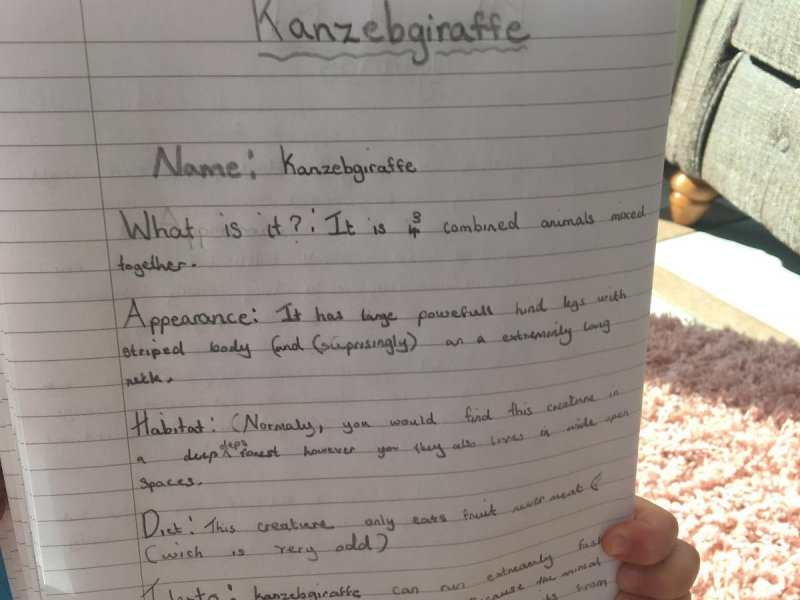 Kanzebgiraffe
Name: Kanzebgiraffe
What is it?: It is 3 4 combined animals mixed
together.
Appearance: It has large powefull hind legs with
striped body (and (suprisingly) an a extremnly long
neck.
Habitat: (Normaly, you would find this creature in
a deep forest however you they also lives in wide open
spaces.
Diet: This creature only eats fruit never meat
(wich is very odd)
Kanzebgiraffe can run extreamly fast
because the
from